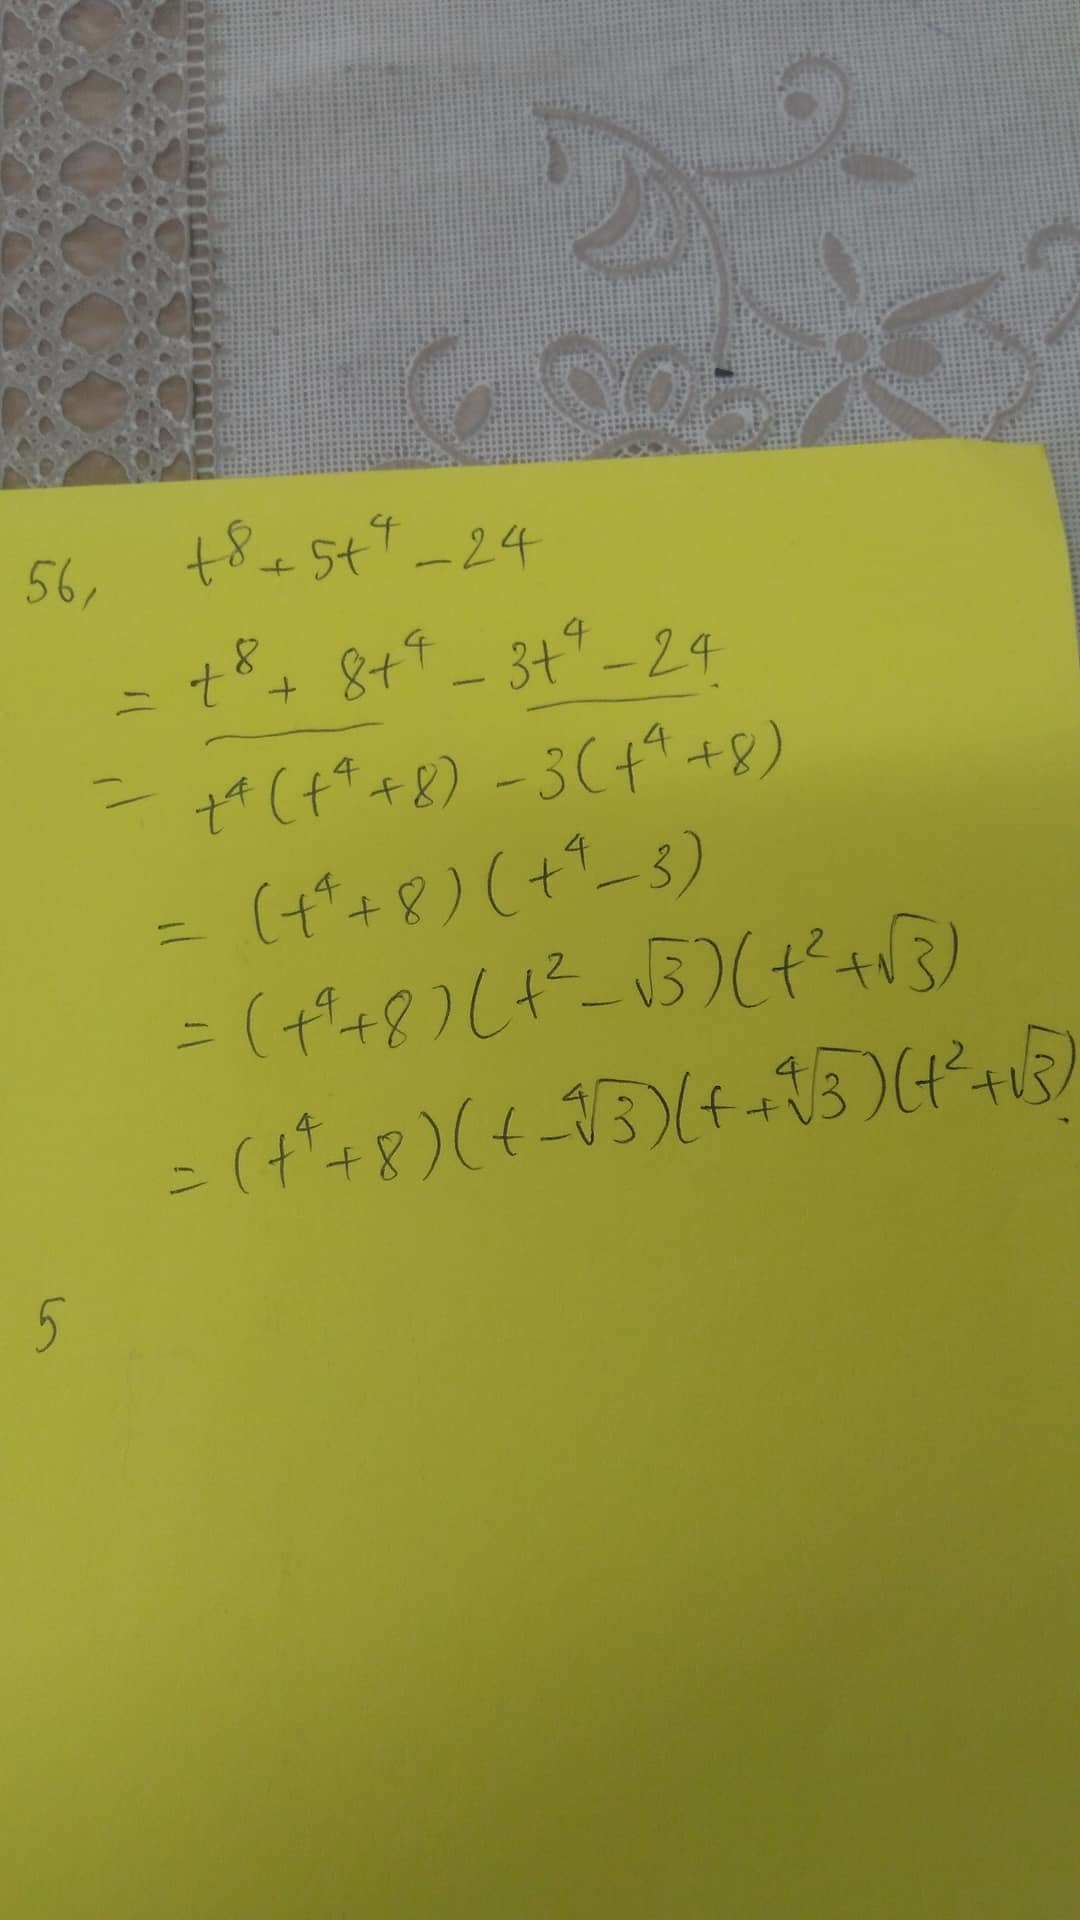 56, t⁸ + 5t⁴ - 24
= t⁸ + 8t⁴ - 3t⁴ - 24
= t⁴(t⁴ + 8) - 3(t⁴ + 8)
= (t⁴ + 8)(t⁴ - 3)
= (t⁴ + 8)(t² - √3)(t² + √3)
= (t⁴ + 8)(t - ∜3)(t + ∜3)(t² + √3).
5